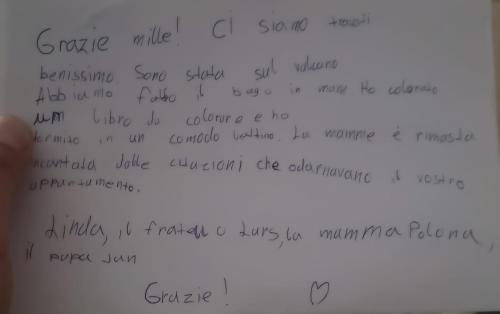 Grazie mille! Ci siamo trovati
benissimo. Sono stata sul vulcano
Abbiamo fatto il bagno in mare Ho colorato
um libro da colorare e ho
dormito in un comodo lettino. La mamma è rimasta
incantata dalle citazioni che odarnavano il vostro
appartamento.
Linda, il fratello Lars, la mamma Polona,
il papà Jan
Grazie!